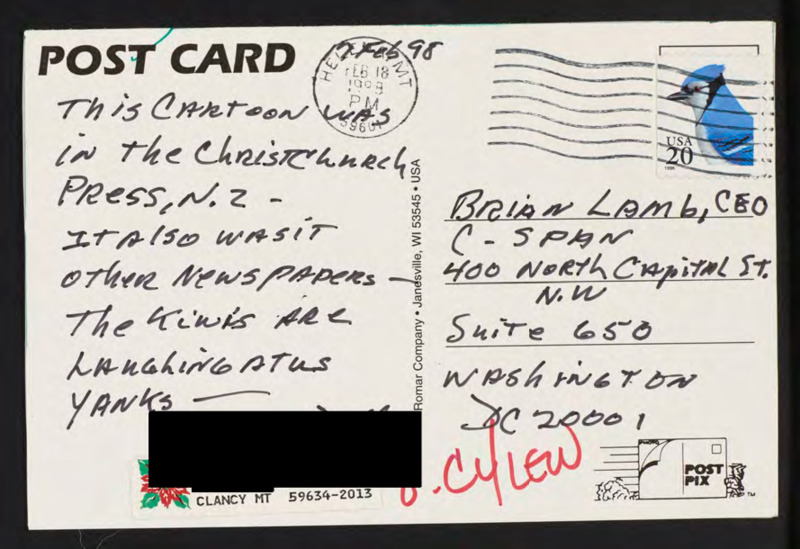 POST CARD
7 Feb 98
HEL MT
FEB 18
1998
PM
5960
This CARTOON WAS
in the ChristChurch
PRESS, N.Z -
IT Also WAS IT
other NewSPAPERS -
The Kiwis ARE
LAUGHING AT US
YANKS -
CLANCY MT 59634-2013
Romar Company • Janesville, WI 53545 • USA
USA
20
1996
BRIAN LAMB, CEO
C-SPAN
400 NORTH CAPITAL ST.
N.W
Suite 650
WASHINGTON
DC 20001
PHOTO
POST
PIX
TM